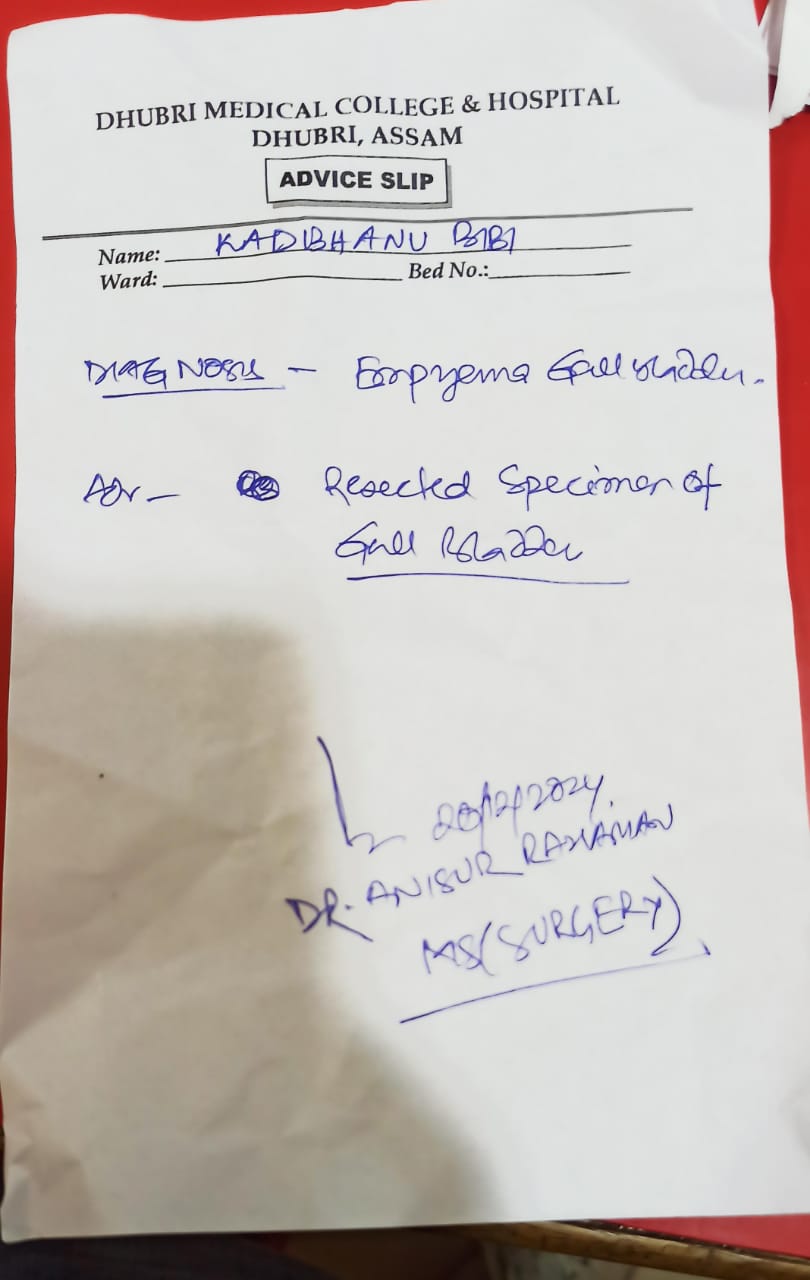 DHUBRI MEDICAL COLLEGE & HOSPITAL
DHUBRI, ASSAM
ADVICE SLIP
Name: KADIBHANU BIBI
Ward: Bed No.:
DIAGNOSIS - Empyema Gall bladder.
Adv - Resected Specimen of
Gall Bladder
20/12/2024
DR. ANISUR RAHAMAN
MS (SURGERY)